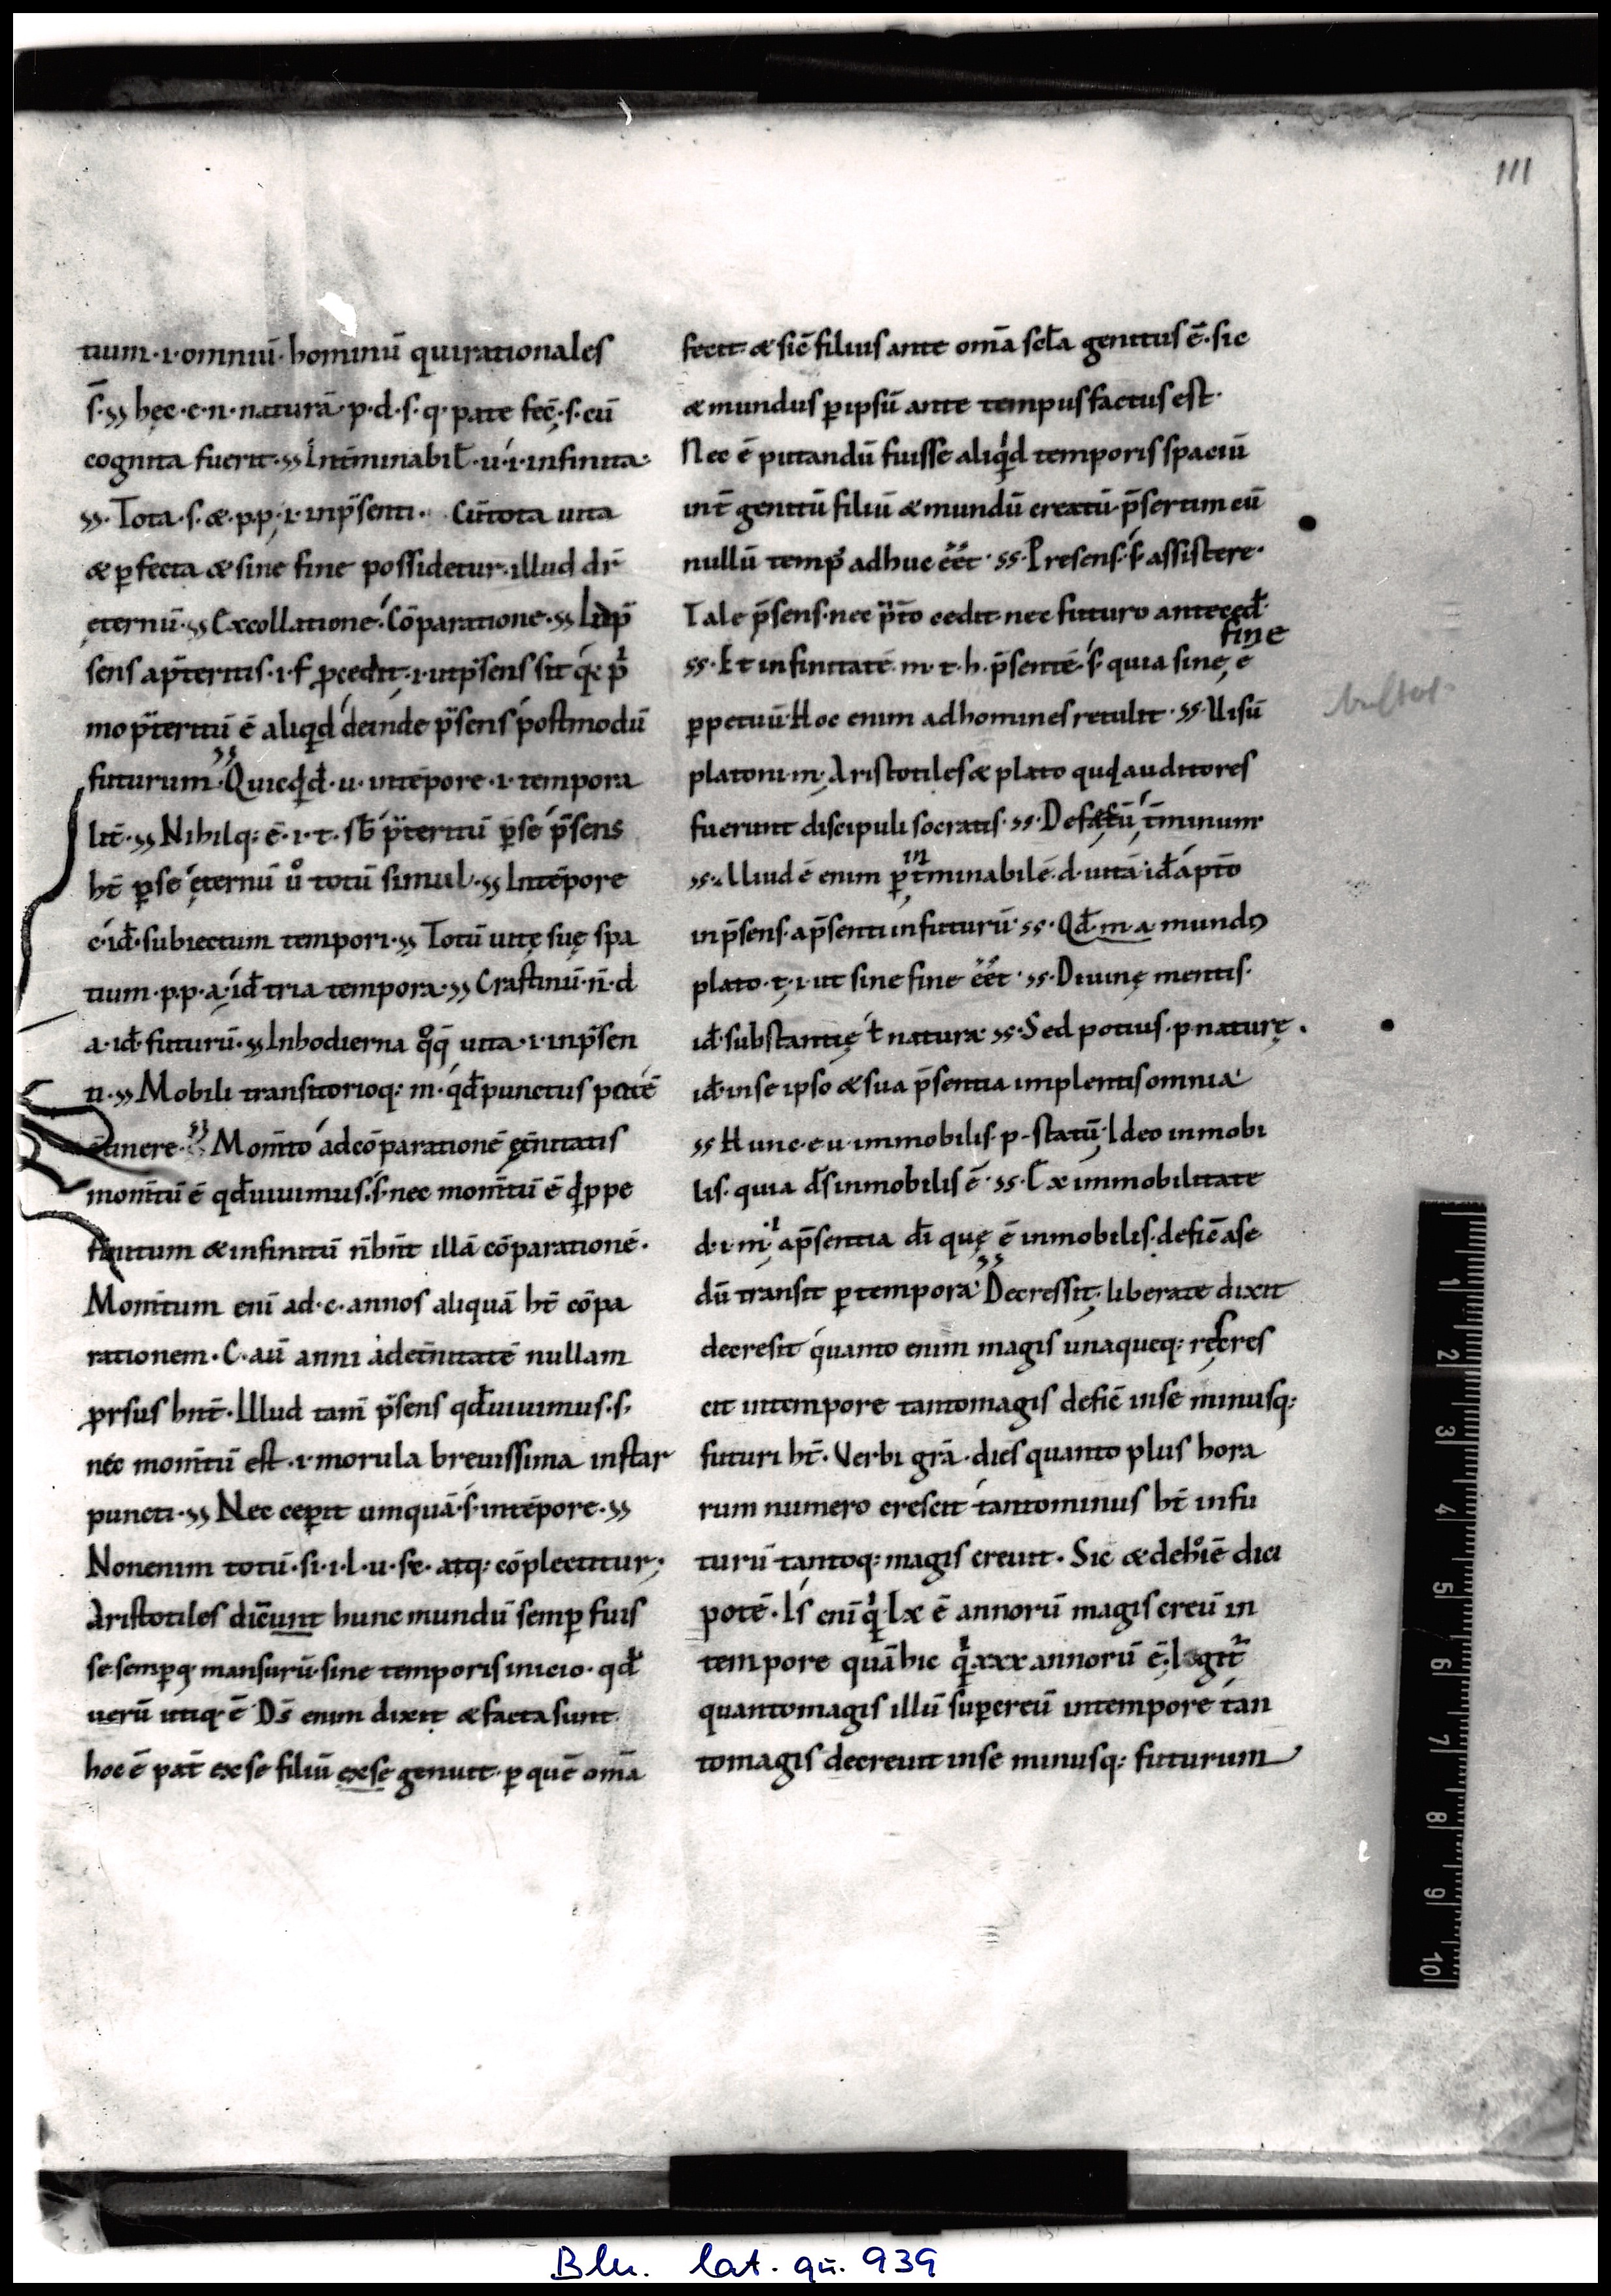 111
tium·i·omniū·hominū qui rationales
s̄·ꝫꝫ hęc·e·n·naturā·p·d·s·q·pate fec̄·s·cū
cognita fuerit·ꝫꝫ Int̄minabil̄·u·i·infinita·
ꝫꝫ·Tota·s·&·p·p·i·inp̄senti· Cū tota uita
& ꝑfecta & sine fine possidetur·illud dr̄
ęternū·ꝫꝫ Ex collatione·cōparatione·ꝫꝫ Id p̄
sens a p̄teritis·i·s̄ ꝓcedit·i·ut p̄sens sit q̄ p̄
mo p̄teritū ē aliqd deinde p̄sens postmodū
futurum·ꝫꝫ Quicqd̄·u·in tēpore·i·tempora
lit̄·ꝫꝫ Nihilq:·ē·i·t· sb̄ p̄teritū ꝑ se p̄sens
ht̄ ꝑ se ęternū ů totū simul·ꝫꝫ In tēpore
e·id̄·subiectum tempori·ꝫꝫ Totū uitę suę spa
tium·p·p·a·id̄ tria tempora·ꝫꝫ Crastinū·n̄·d
a·id̄·futurū·ꝫꝫ In hodierna q̊q̄ uita·i·in p̄sen
ti·ꝫꝫ Mobili transitorioq:·m·qd̄ punctus potē
Momt̄o ad cōparationē ęt̄nitatis
momt̄ū ē qd̄ uiuimus·s·nec momt̄ū ē qppe
finitum & infinitū n̄ hn̄t illā cōparationē·
Momt̄um enī ad·c·annos aliquā ht̄ cōpa
rationem·C·aū anni ad et̄nitatē nullam
ꝓrsus hnt̄·Illud tam̄ p̄sens qd̄ uiuimus·s·
nec momt̄ū est·i·morula breuissima instar
puncti·ꝫꝫ Nec cepit umquā·s·in tēpore·ꝫꝫ
Non enim totū·si·i·l·u·se·atq: cōplectitur·
Aristotiles dic̄unt hunc mundū semꝑ fuis
se semꝑq mansurū·sine temporis inicio·qd̄
uerū utiq ē Ds̄ enim dixit & facta sunt
hoc ē pat̄ ex se filiū ex se genuit·ꝑ quē om̄a
fecit·& sic̄ filius ante om̄a scl̄a genitus ē·sic
& mundus ꝑ ipsū ante tempus factus est·
Nec ē putandū fuisse aliqd temporis spaciū
int̄ genitū filiū & mundū creatū·p̄sertim cū
nullū temp̄ adhuc ēēt·ꝫꝫ·Presens·s·assistere·
Tale p̄sens·nec p̄t̄o cedit·nec futuro anteced̄·
fine
ꝫꝫ·Et infinitatē·m·t·h·p̄sentē·s·quia sine ē
ꝑpetuū·Hoc enim ad homines retulit·ꝫꝫ·Uisū
platoni·m·Aristotiles & plato quq auditores
fuerunt discipuli socratis·ꝫꝫ·Defectū t̄minum
ꝫꝫ·Aliud ē enim ꝑ int̄minabilē·d·uitā id̄ a p̄t̄o
in p̄sens·a p̄senti in futurū·ꝫꝫ·Qd̄·m·a·mundꝰ
plato·t·i·ut sine fine ēēt·ꝫꝫ·Diuinę mentis·
id̄·substantię ł naturæ·ꝫꝫ·Sed potius·p·naturę·
id̄·in se ipso & sua p̄sentia implentis omnia
ꝫꝫ Hunc·e·u·immobilis·p·statū·Ideo inmobi
lis·quia ds̄ inmobilis ē·ꝫꝫ·Ex immobilitate
d·i·m·a p̄sentia di̅ quę ē inmobilis·defic̄ a se
dū transit ꝑ tempora·ꝫꝫ Decressit·liberate dixit
decresit quanto enim magis unaqueq: res cres
cit in tempore tantomagis defic̄ in se minusq:
futuri ht̄·Verbi grā·dies quanto plus hora
rum numero crescit tantominus ht̄ in fu
turū tantoq: magis creuit·Sic & de hōīē dici
potē·Is enī q·lx ē annorū magis creū in
tempore quā hic q·xxx annorū ē·
quantomagis illū super creū in tempore tan
tomagis decreuit in se minusq: futurum
1 2 3 4 5 6 7 8 9 10
Bln. lat. qu. 939